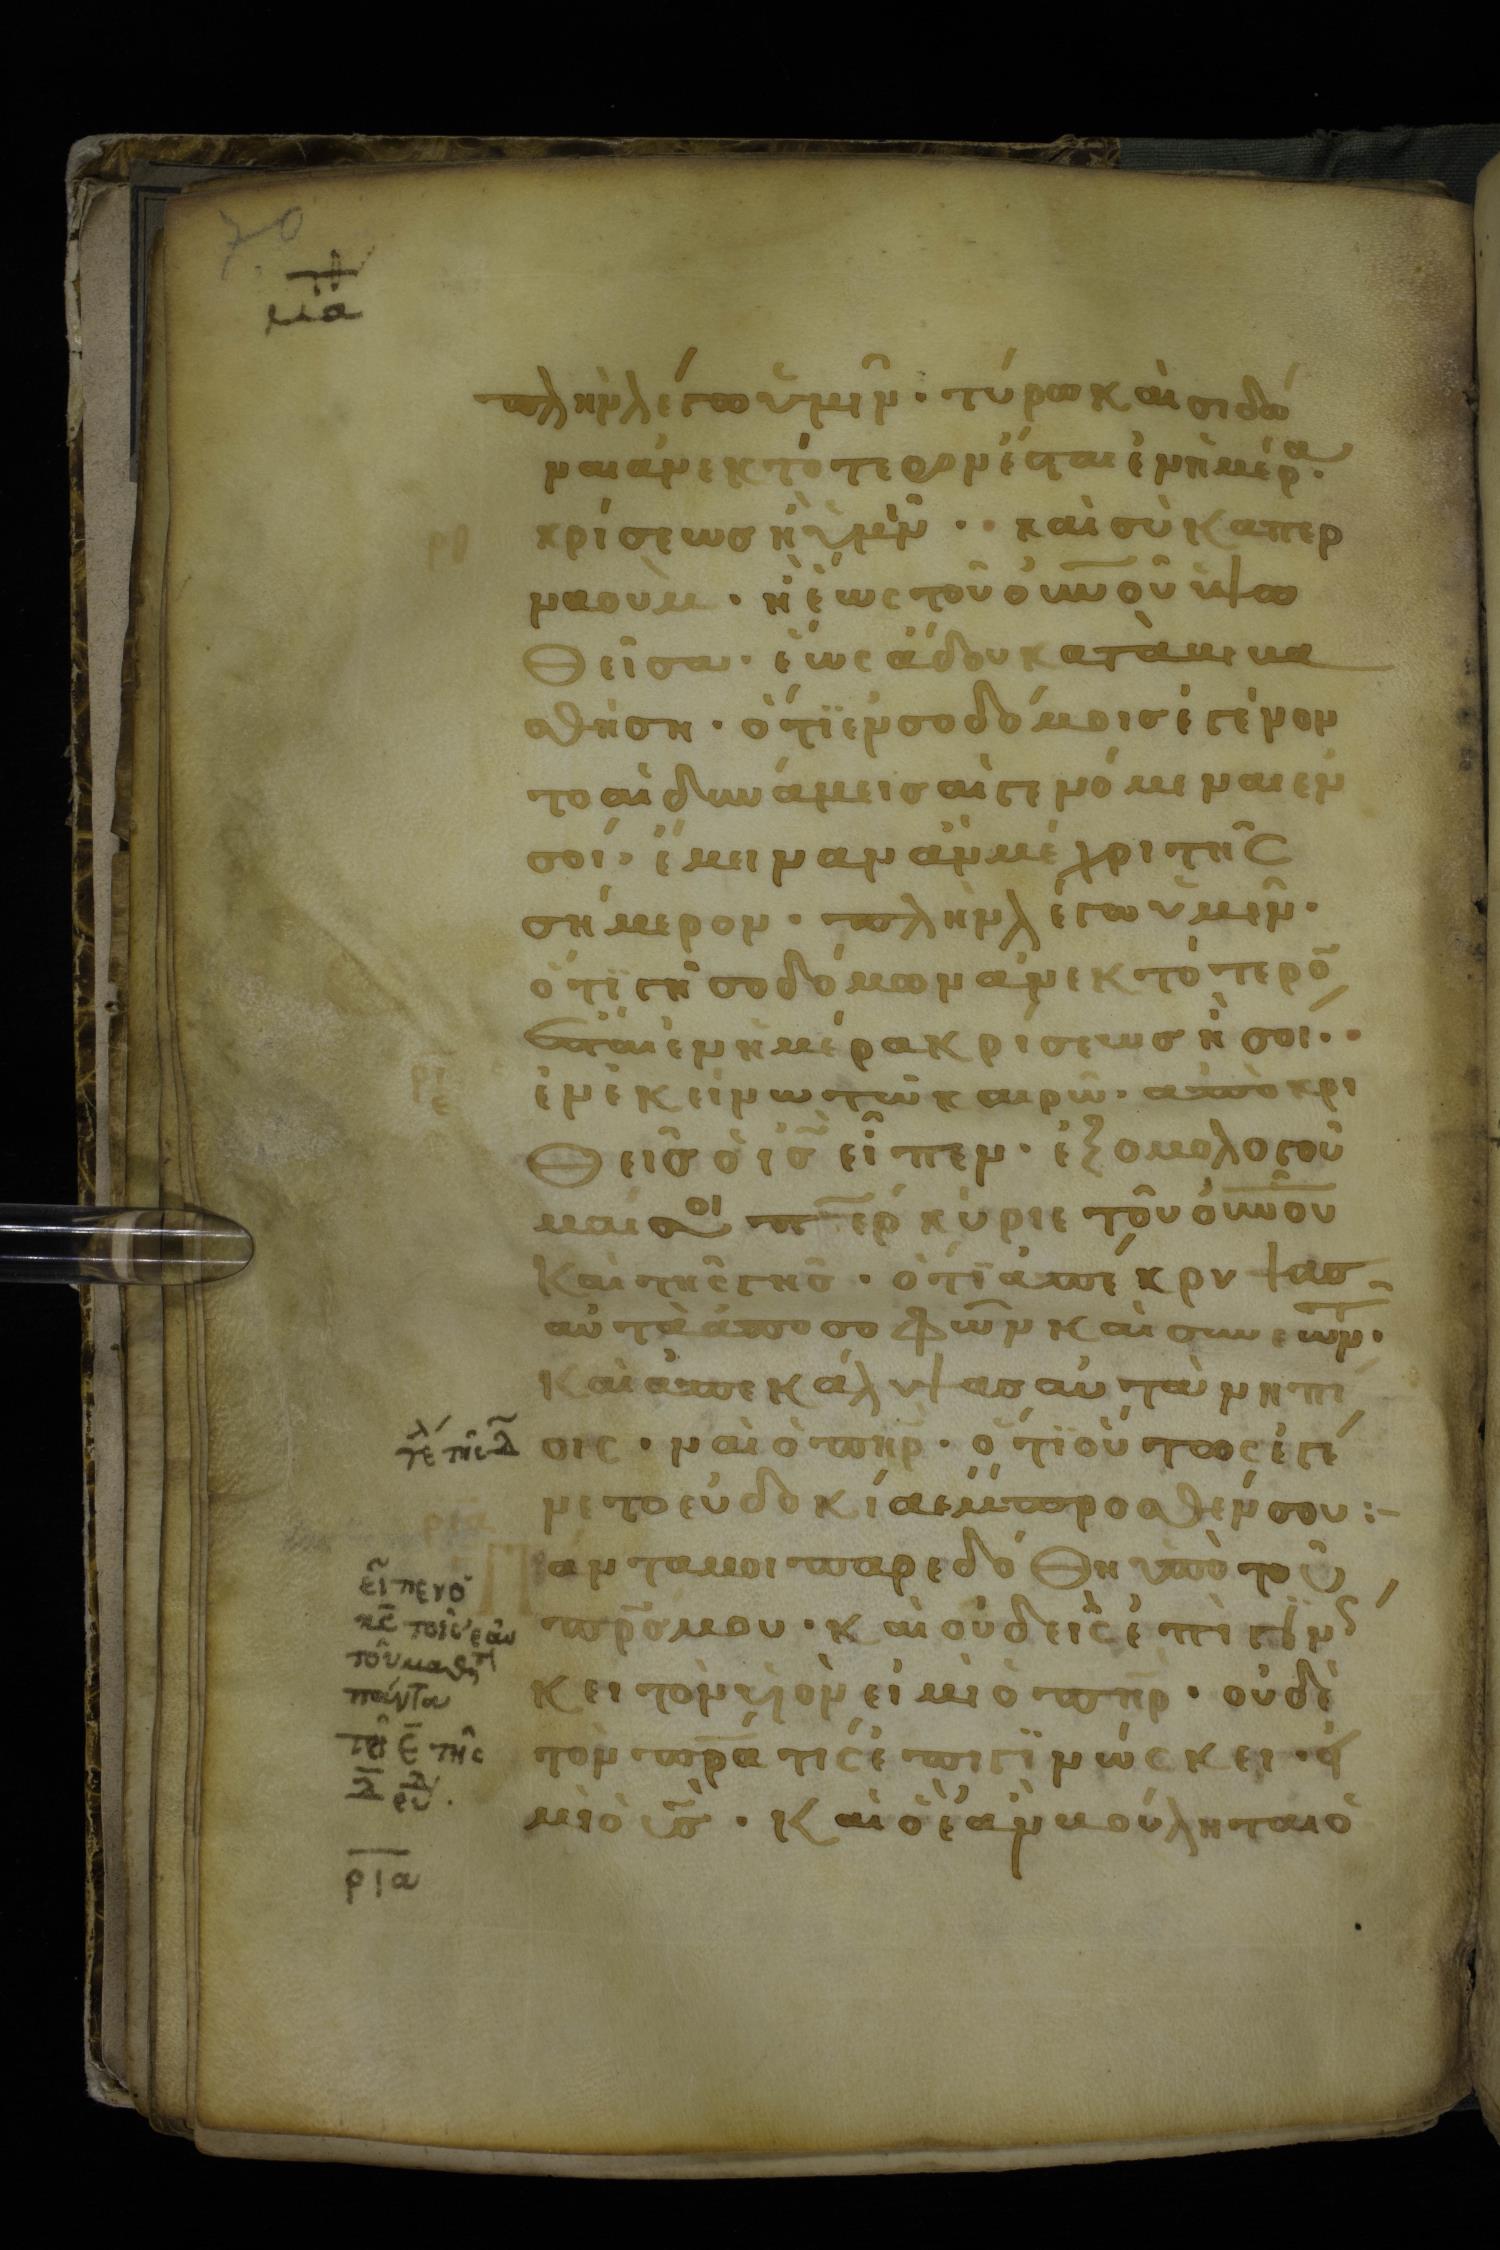 70
μια
πλὴν λέγω ὑμῖν · τύρω καὶ σιδῶ
νι ἀνεκτότερον ἔσται ἐν ἡμέρα
κρίσεως ἢ ὑμῖν · καὶ σὺ καπερ
ναοὺμ · ἡ ἕως τοῦ οὐνοῦ ὑψω
θεῖσα · ἕως ἅδου καταβιβα
σθήση · ὅτι ἐν σοδόμοις ἐγένον
το αἱ δυνάμεις αἱ γενόμεναι ἐν
σοί · ἔμειναν ἂν μέχρι τῆς
σήμερον · πλὴν λέγω ὑμῖν ·
ὅτι γῆ σοδόμων ἀνεκτότερο̄
ἔσται ἐν ἡμέρα κρίσεως ἢ σοί ·
ἐν ἐκείνω τῶ καιρῶ · ἀποκρι
θεὶς ὁ ις̄ εἶπεν · ἐξομολογοῦ
μαί σοι πε̄ρ κύριε τοῦ οὐνοῦ
καὶ τῆς γῆς · ὅτι ἀπέκρυψας
αὐτὰ ἀπὸ σοφῶν καὶ συνετῶν ·
καὶ ἀπεκάλυψας αὐτὰ νηπί
οις · ναὶ ὁ πη̄ρ · ὅτι οὕτως ἐγέ
νετο εὐδοκία ἔμπροσθέν σου :-
Πάντα μοι παρεδόθη ὑπὸ τοῦ
πρ̄ς μου · καὶ οὐδεὶς ἐπιγινώς
κει τὸν υἱὸν εἰ μὴ ὁ πη̄ρ · οὐδὲ
τὸν πρ̄α τίς ἐπιγινώσκει · εἰ
μὴ ὁ υς̄ · καὶ ὧ ἐὰν βούληται ὁ
εἶπεν ὁ
κς̄ τοῖς ἑαυ
τοῦ μαθητ
πάντα
ρια